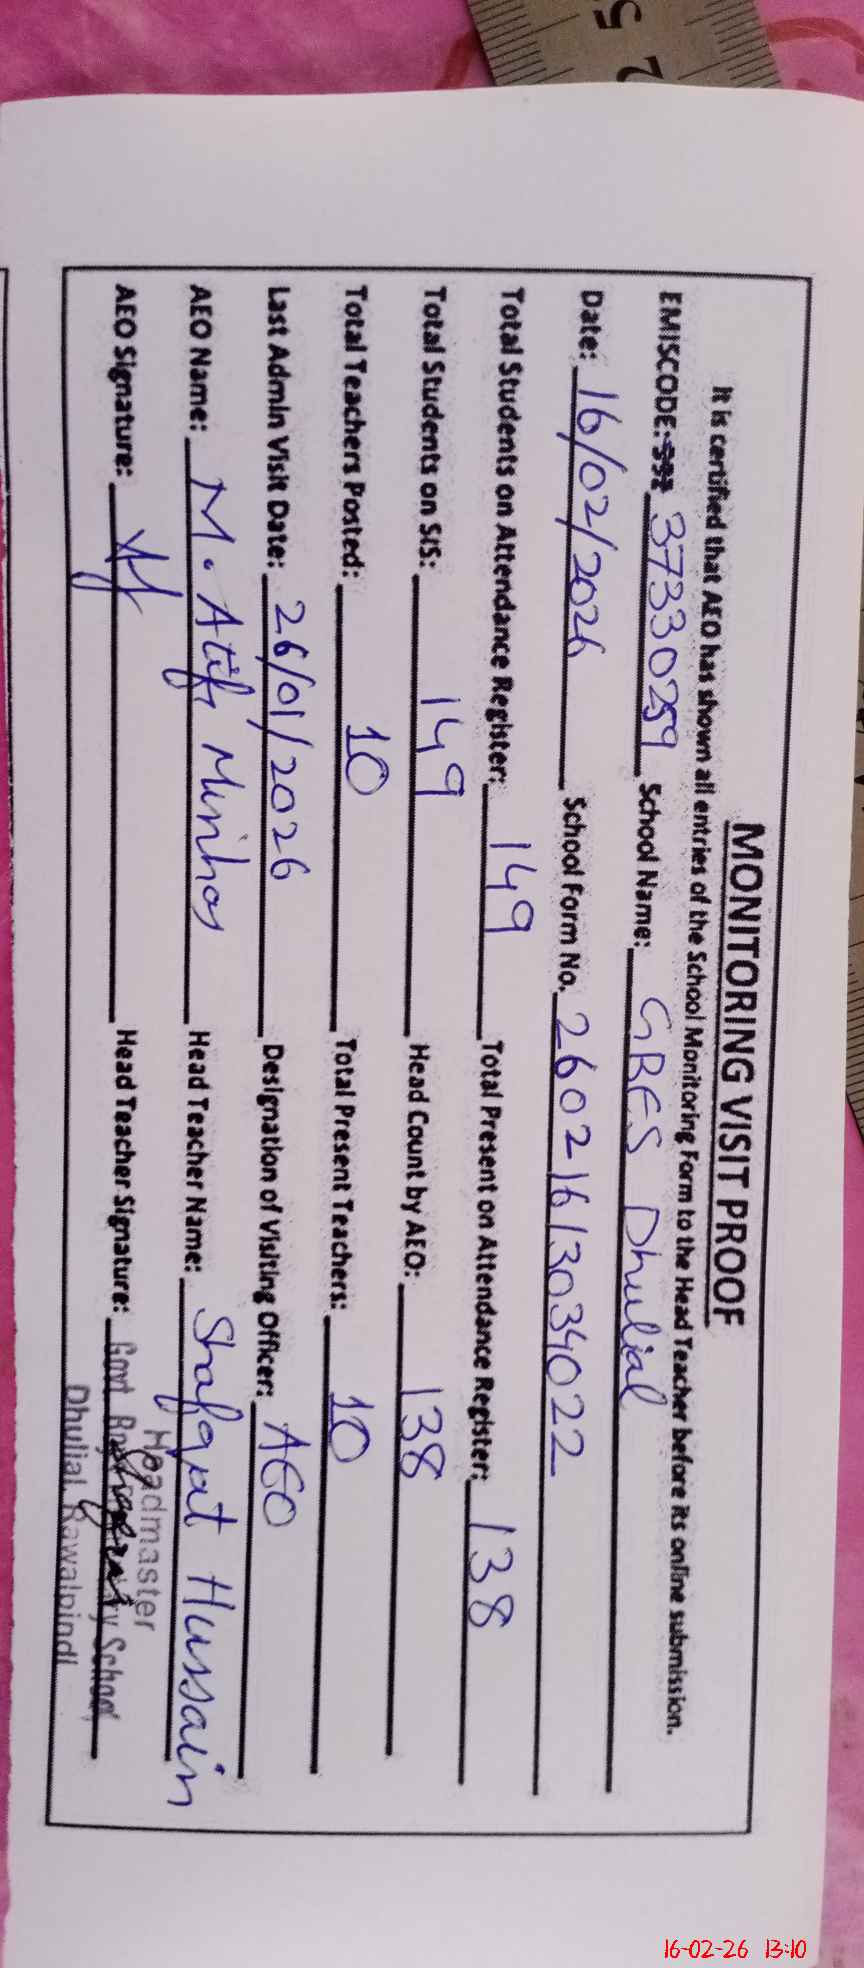 MONITORING VISIT PROOF
It is certified that AEO has shown all entries of the School Monitoring Form to the Head Teacher before its online submission.
EMISCODE: 37330259 School Name: GBES Dhulial
Date: 16/02/2026 School Form No. 26021613034022
Total Students on Attendance Register: 149 Total Present on Attendance Register: 138
Total Students on SIS: 149 Head Count by AEO: 138
Total Teachers Posted: 10 Total Present Teachers: 10
Last Admin Visit Date: 26/01/2026 Designation of Visiting Officer: AEO
AEO Name: M. Atif Minhas Head Teacher Name: Shafqat Hussain
AEO Signature: Head Teacher Signature:
Headmaster
Govt School
Dhulial Rawalpindi
2 5
16-02-26 13:10